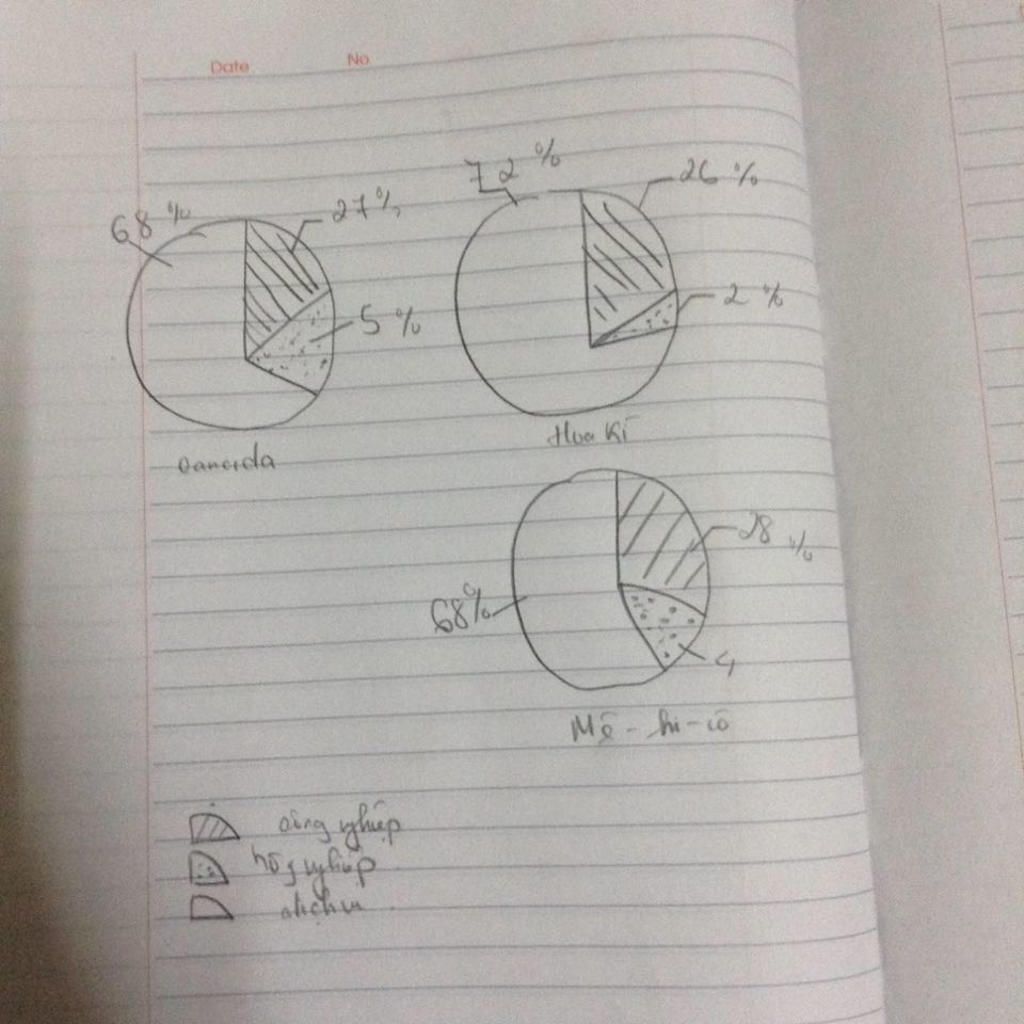 Date No
68 % 27 % 72 % 26 %
5 % 2 %
Canada Hoa Kì
28 %
68%
4
Mê - hi - cô
công nghiệp
nông nghiệp
dịch vụ